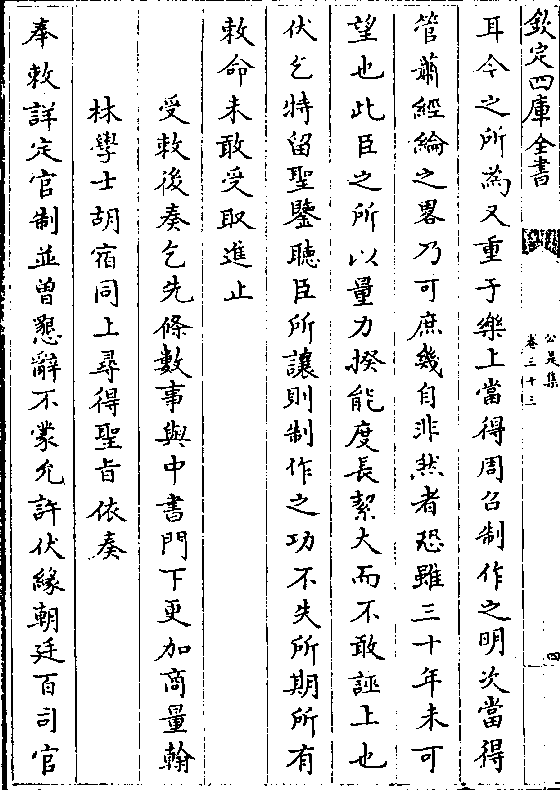 欽定四庫全書
公是集
卷三十三
四
耳今之所為又重于樂上當得周召制作之明次當得
管蕭經綸之畧乃可庶幾自非然者恐雖三十年未可
望也此臣之所以量力揆能度長絜大而不敢誣上也
伏乞特留聖鑒聽臣所讓則制作之功不失所期所有
敕命未敢受取進止
受敕後奏乞先條數事與中書門下更加商量翰
林學士胡宿同上尋得聖旨依奏
奉敕詳定官制並曾懇辭不蒙允許伏緣朝廷百司官